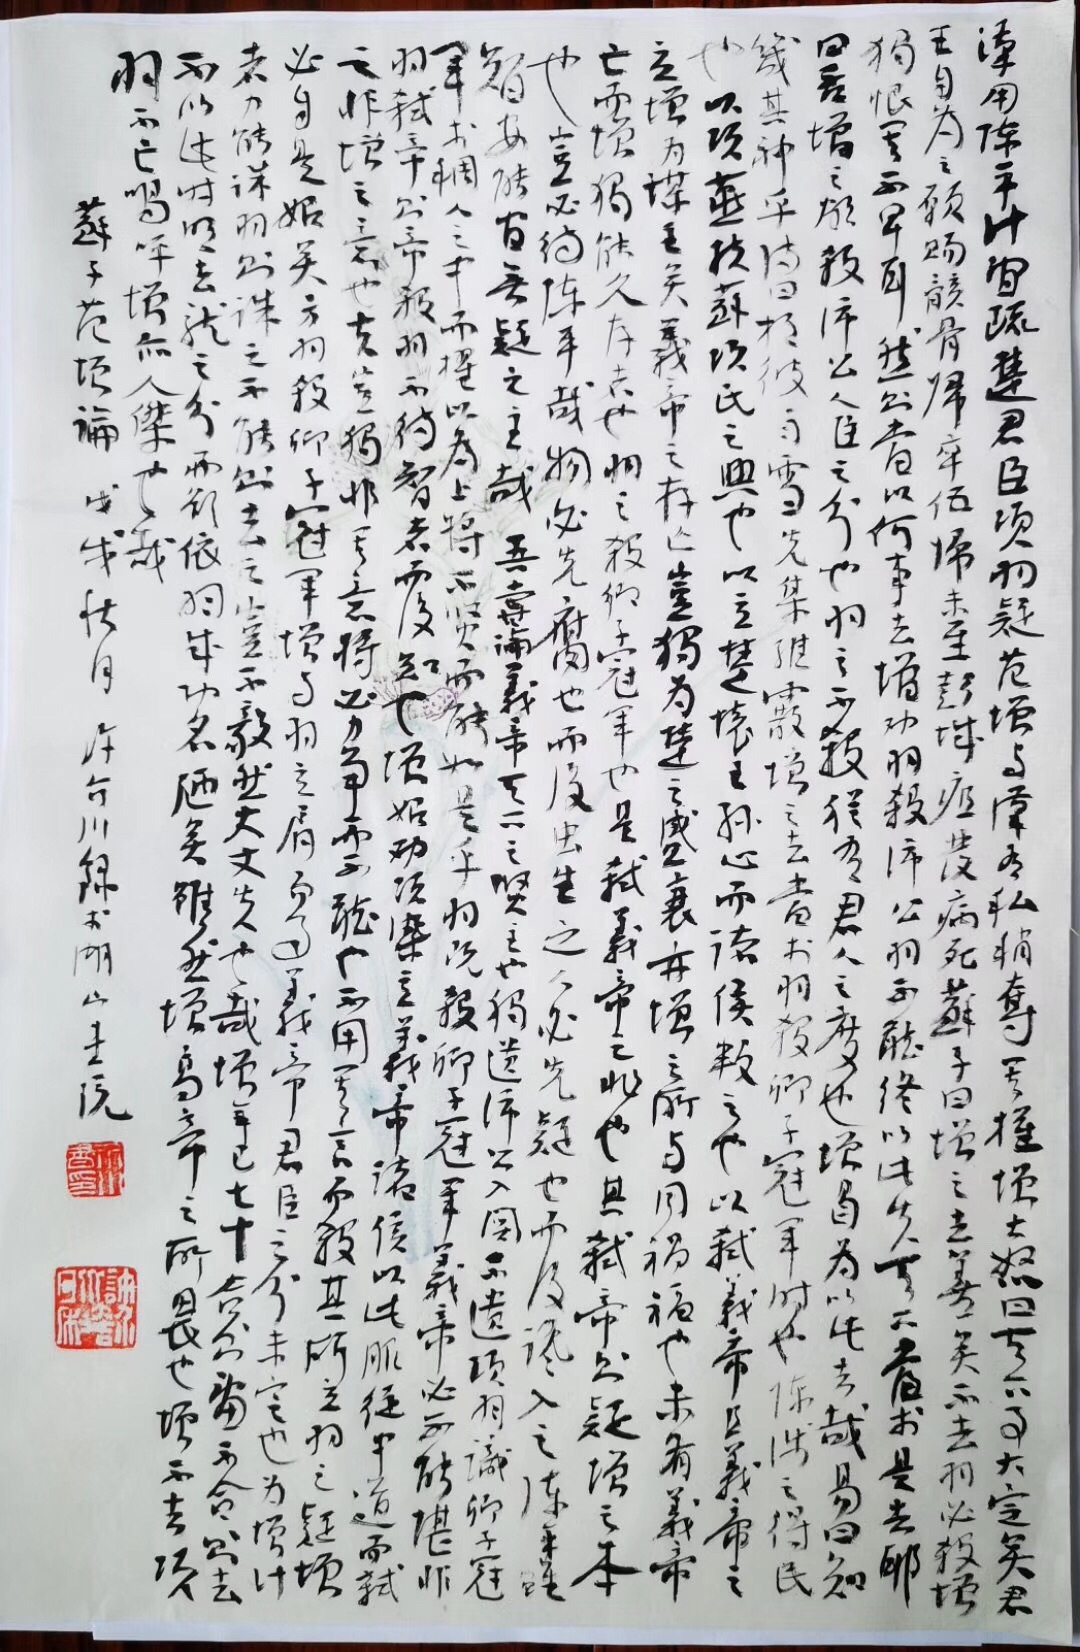 漢用陳平計間疏楚君臣項羽疑范增与漢有私稍奪其權增大怒曰天下事大定矣君
王自為之願賜骸骨歸卒伍歸未至彭城疽發病死蘇子曰增之去善矣不去羽必殺增
獨恨其不早耳然則當以何事去增劝羽殺沛公羽不聽終以此失天下當於是去耶
曰否增之欲殺沛公人臣之分也羽之不殺猶有君人之度也增曷為以此去哉易曰知
幾其神乎詩曰相彼雨雪先集維霰增之去當於羽殺卿子冠軍時也陳涉之得民
也以項燕扶蘇項氏之興也以立楚懷王孫心而諸侯叛之也以弑義帝且義帝之
立增為謀主矣義帝之存亡豈獨為楚之盛衰亦增之所与同禍福也未有義帝
亡而增獨能久存者也羽之殺卿子冠軍也是弑義帝之兆也其弑帝則疑增之本
也豈必待陳平哉物必先腐也而後虫生之人必先疑也而後讒入之陳平雖
智安能間無疑之主哉 吾嘗論義帝天下之賢主也獨遣沛公入關不遣項羽識卿子冠
軍於稠人之中而擢以為上將不賢而能如是乎羽既殺卿子冠軍義帝必不能堪非
羽弑帝則帝殺羽不待智者而後知也增始勸項梁立義帝諸侯以此服從中道而弑
之非增之意也夫豈獨非其意將必力爭而不聽也不用其言而殺其所立羽之疑增
必自是始矣方羽殺卿子冠軍增与羽比肩而事義帝君臣之分未定也為增計
者力能誅羽則誅之不能則去之豈不毅然大丈夫也哉增年已七十合則留不合則去
不以此時明去就之分而欲依羽成功名陋矣雖然增高帝之所畏也增不去項
羽不亡嗚呼增亦人傑也哉
蘇子范增論 戊戌秋月 許 川錄於湖山書院